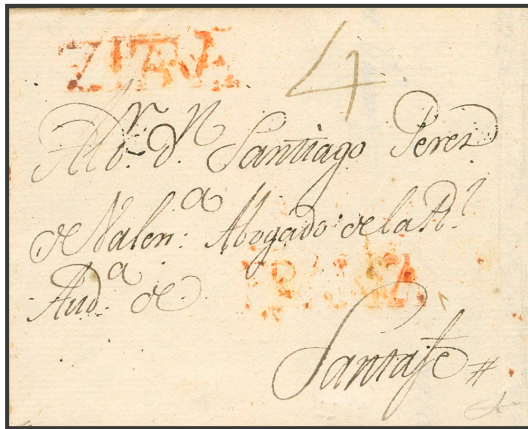 4
D.n Santiago Perez
de Valen.a Abogado de la R.l
Aud.a de
Santafe